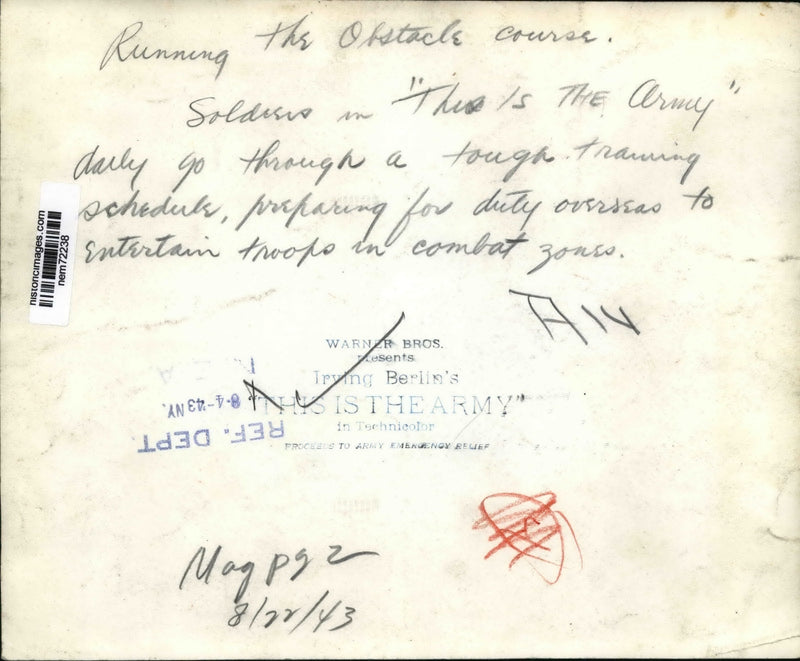 Running the Obstacle course.
Soldiers in "This Is THE Army"
daily go through a tough training
schedule, preparing for duty overseas to
entertain troops in combat zones.
historicimages.com
nem72238
WARNER BROS.
presents
Irving Berlin's
"THIS IS THE ARMY"
in Technicolor
PROCEEDS TO ARMY EMERGENCY RELIEF
8-4-43 NY.
REF. DEPT
Mag pg 2
8/22/43